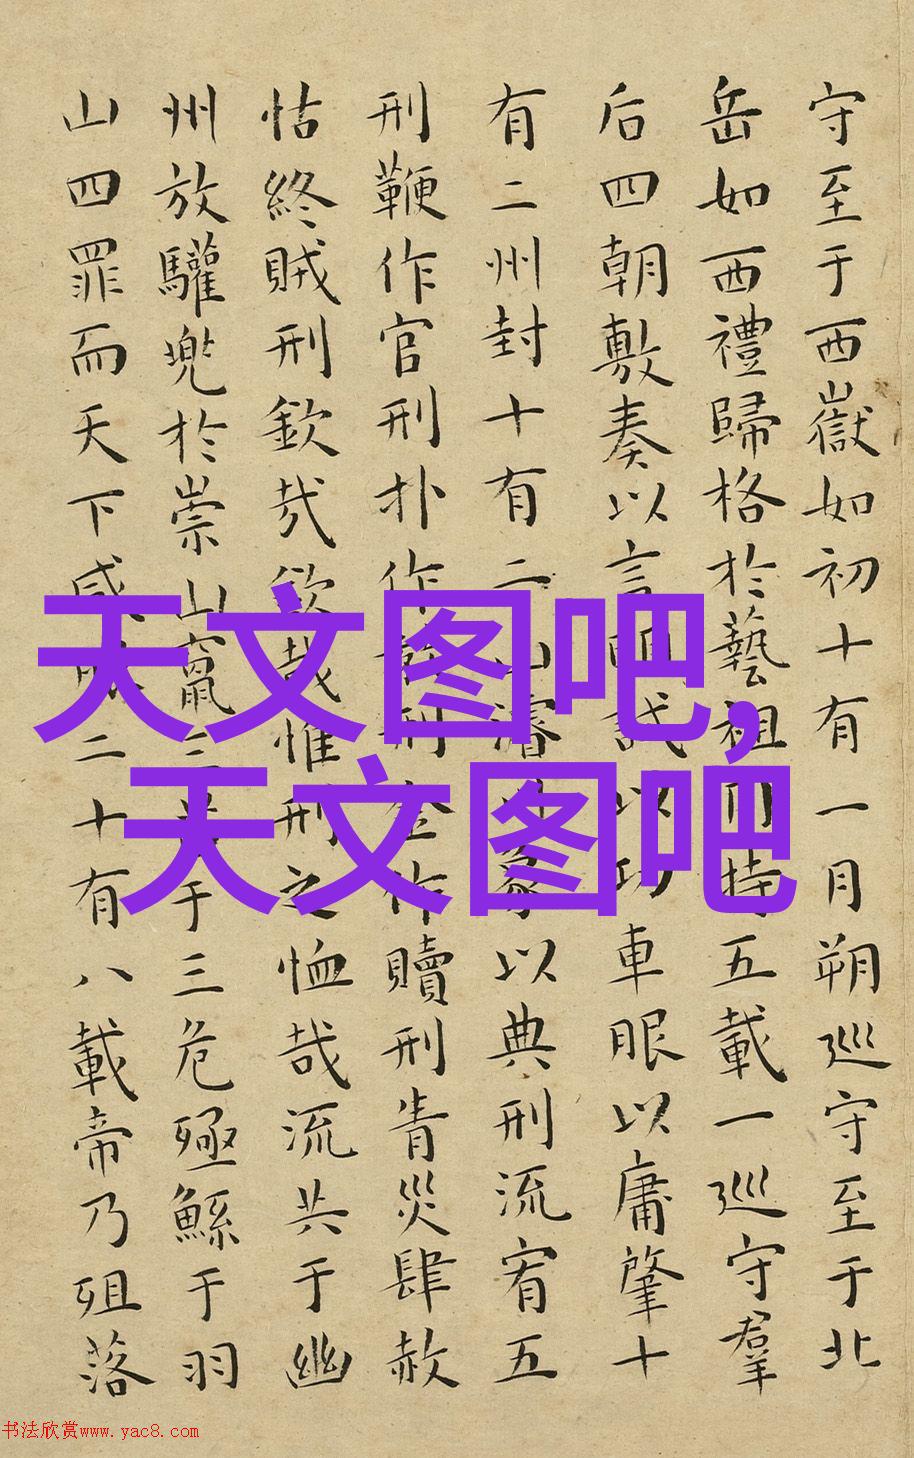 守至于西嶽如初十有一月朔巡守至于北
岳如西禮歸格於藝祖用特五載一巡守羣
后四朝敷奏以言明試以功車眼以庸肇十
有二州封十有二山濬象以典刑流宥五
刑鞭作官刑朴作刑金作贖刑眚災肆赦
怙終賊刑欽哉欽哉惟刑之恤哉流共于幽
州放驩兜於崇山竄三于三危殛鯀于羽
山四罪而天下咸服二十有八載帝乃殂落
天文图吧,
天文图吧
书法欣赏www.yac8.com